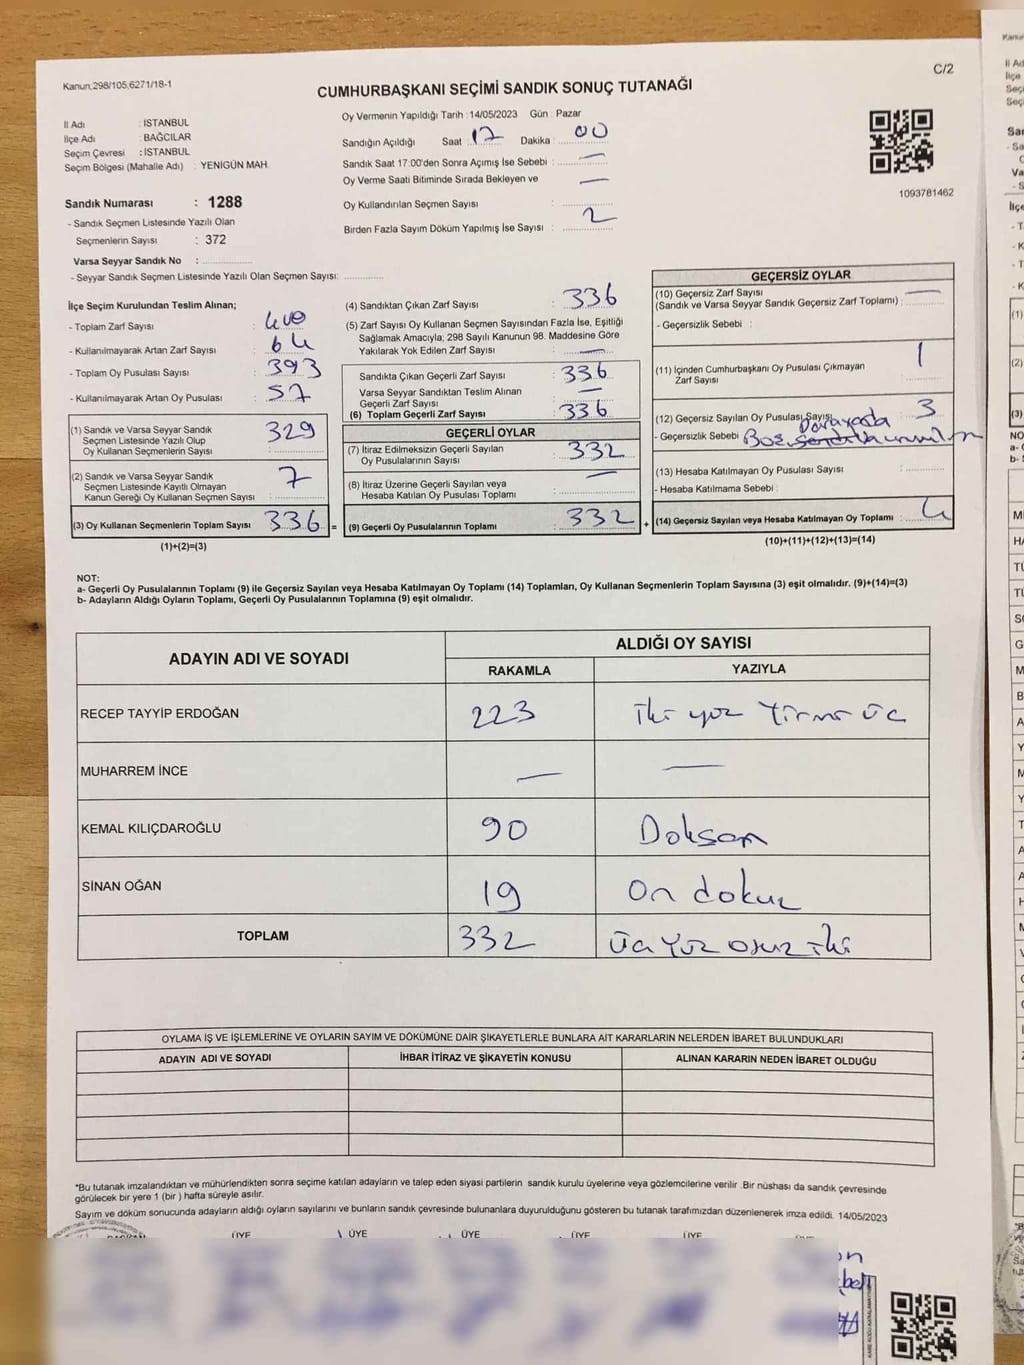 Kanun;298/105,6271/18-1
C/2
CUMHURBAŞKANI SEÇİMİ SANDIK SONUÇ TUTANAĞI
İl Adı : İSTANBUL
İlçe Adı : BAĞCILAR
Seçim Çevresi : İSTANBUL
Seçim Bölgesi (Mahalle Adı) : YENİGÜN MAH.
Sandık Numarası : 1288
- Sandık Seçmen Listesinde Yazılı Olan
Seçmenlerin Sayısı : 372
Varsa Seyyar Sandık No :
- Seyyar Sandık Seçmen Listesinde Yazılı Olan Seçmen Sayısı:
Oy Vermenin Yapıldığı Tarih : 14/05/2023 Gün : Pazar
Sandığın Açıldığı Saat 17 Dakika : 00
Sandık Saat 17:00'den Sonra Açımış İse Sebebi : —
Oy Verme Saati Bitiminde Sırada Bekleyen ve —
Oy Kullandırılan Seçmen Sayısı :
Birden Fazla Sayım Döküm Yapılmış İse Sayısı : 2
1093781462
İlçe Seçim Kurulundan Teslim Alınan;
- Toplam Zarf Sayısı : 400
- Kullanılmayarak Artan Zarf Sayısı : 64
- Toplam Oy Pusulası Sayısı : 393
- Kullanılmayarak Artan Oy Pusulası : 57
(1) Sandık ve Varsa Seyyar Sandık
Seçmen Listesinde Yazılı Olup
Oy Kullanan Seçmenlerin Sayısı : 329
(2) Sandık ve Varsa Seyyar Sandık
Seçmen Listesinde Kayıtlı Olmayan
Kanun Gereği Oy Kullanan Seçmen Sayısı : 7
(3) Oy Kullanan Seçmenlerin Toplam Sayısı 336 =
(1)+(2)=(3)
(4) Sandıktan Çıkan Zarf Sayısı : 336
(5) Zarf Sayısı Oy Kullanan Seçmen Sayısından Fazla İse, Eşitliği
Sağlamak Amacıyla; 298 Sayılı Kanunun 98. Maddesine Göre
Yakılarak Yok Edilen Zarf Sayısı : —
Sandıkta Çıkan Geçerli Zarf Sayısı : 336
Varsa Seyyar Sandıktan Teslim Alınan
Geçerli Zarf Sayısı : —
(6) Toplam Geçerli Zarf Sayısı : 336
GEÇERLİ OYLAR
(7) İtiraz Edilmeksizin Geçerli Sayılan
Oy Pusulalarının Sayısı : 332
(8) İtiraz Üzerine Geçerli Sayılan veya
Hesaba Katılan Oy Pusulası Toplamı : —
(9) Geçerli Oy Pusulalarının Toplamı : 332 +
GEÇERSİZ OYLAR
(10) Geçersiz Zarf Sayısı —
(Sandık ve Varsa Seyyar Sandık Geçersiz Zarf Toplamı) :
- Geçersizlik Sebebi :
(11) İçinden Cumhurbaşkanı Oy Pusulası Çıkmayan
Zarf Sayısı : 1
(12) Geçersiz Sayılan Oy Pusulası Sayısı 3
- Geçersizlik Sebebi Boş
(13) Hesaba Katılmayan Oy Pusulası Sayısı :
- Hesaba Katılmama Sebebi :
(14) Geçersiz Sayılan veya Hesaba Katılmayan Oy Toplamı : 4
(10)+(11)+(12)+(13)=(14)
NOT:
a- Geçerli Oy Pusulalarının Toplamı (9) ile Geçersiz Sayılan veya Hesaba Katılmayan Oy Toplamı (14) Toplamları, Oy Kullanan Seçmenlerin Toplam Sayısına (3) eşit olmalıdır. (9)+(14)=(3)
b- Adayların Aldığı Oyların Toplamı, Geçerli Oy Pusulalarının Toplamına (9) eşit olmalıdır.
ADAYIN ADI VE SOYADI
ALDIĞI OY SAYISI
RAKAMLA YAZIYLA
RECEP TAYYİP ERDOĞAN 223 iki yüz Yirmi üç
MUHARREM İNCE — —
KEMAL KILIÇDAROĞLU 90 Doksan
SİNAN OĞAN 19 On dokuz
TOPLAM 332 üç Yüz otuz iki
OYLAMA İŞ VE İŞLEMLERİNE VE OYLARIN SAYIM VE DÖKÜMÜNE DAİR ŞİKAYETLERLE BUNLARA AİT KARARLARIN NELERDEN İBARET BULUNDUKLARI
ADAYIN ADI VE SOYADI İHBAR İTİRAZ VE ŞİKAYETİN KONUSU ALINAN KARARIN NEDEN İBARET OLDUĞU
*Bu tutanak imzalandıktan ve mühürlendikten sonra seçime katılan adayların ve talep eden siyasi partilerin sandık kurulu üyelerine veya gözlemcilerine verilir .Bir nüshası da sandık çevresinde
görülecek bir yere 1 (bir ) hafta süreyle asılır.
Sayım ve döküm sonucunda adayların aldığı oyların sayılarını ve bunların sandık çevresinde bulunanlara duyurulduğunu gösteren bu tutanak tarafımızdan düzenlenerek imza edildi. 14/05/2023
ÜYE ÜYE ÜYE ÜYE ÜYE